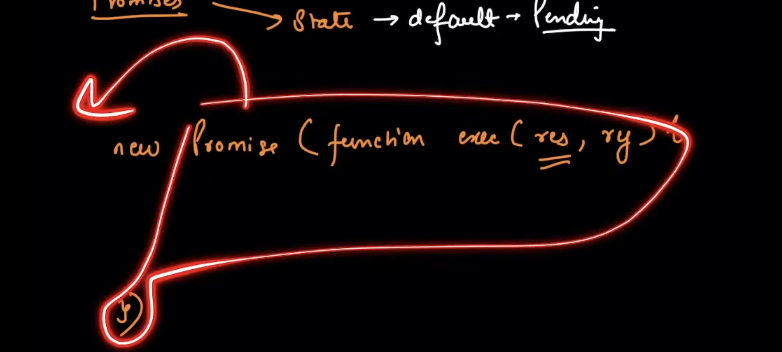 Promises → State → default → Pending
new Promise ( function exec ( res, rej ) {
})